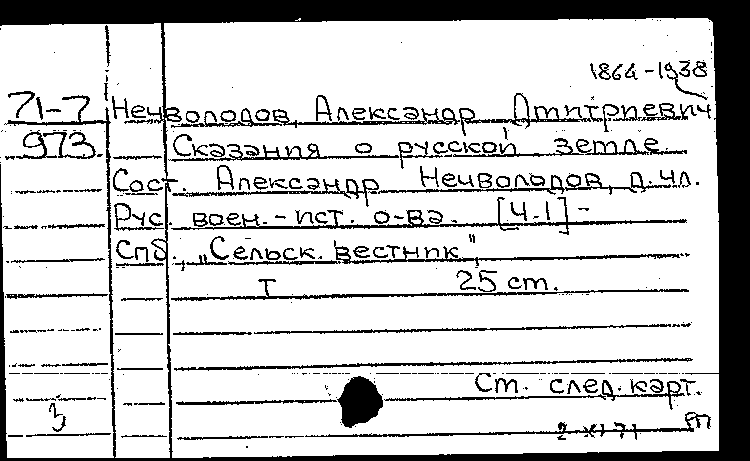 1864-1938
71-7 Нечволодов, Александр Дмитриевич
973. Сказания о русской земле
Сост. Александр Нечволодов, д.чл.
Рус. воен.-ист. о-ва. [Ч.1] -
Спб., „Сельск. вестник",
т 25 cm.
Ст. след. карт.
3 2-XI-71 РП